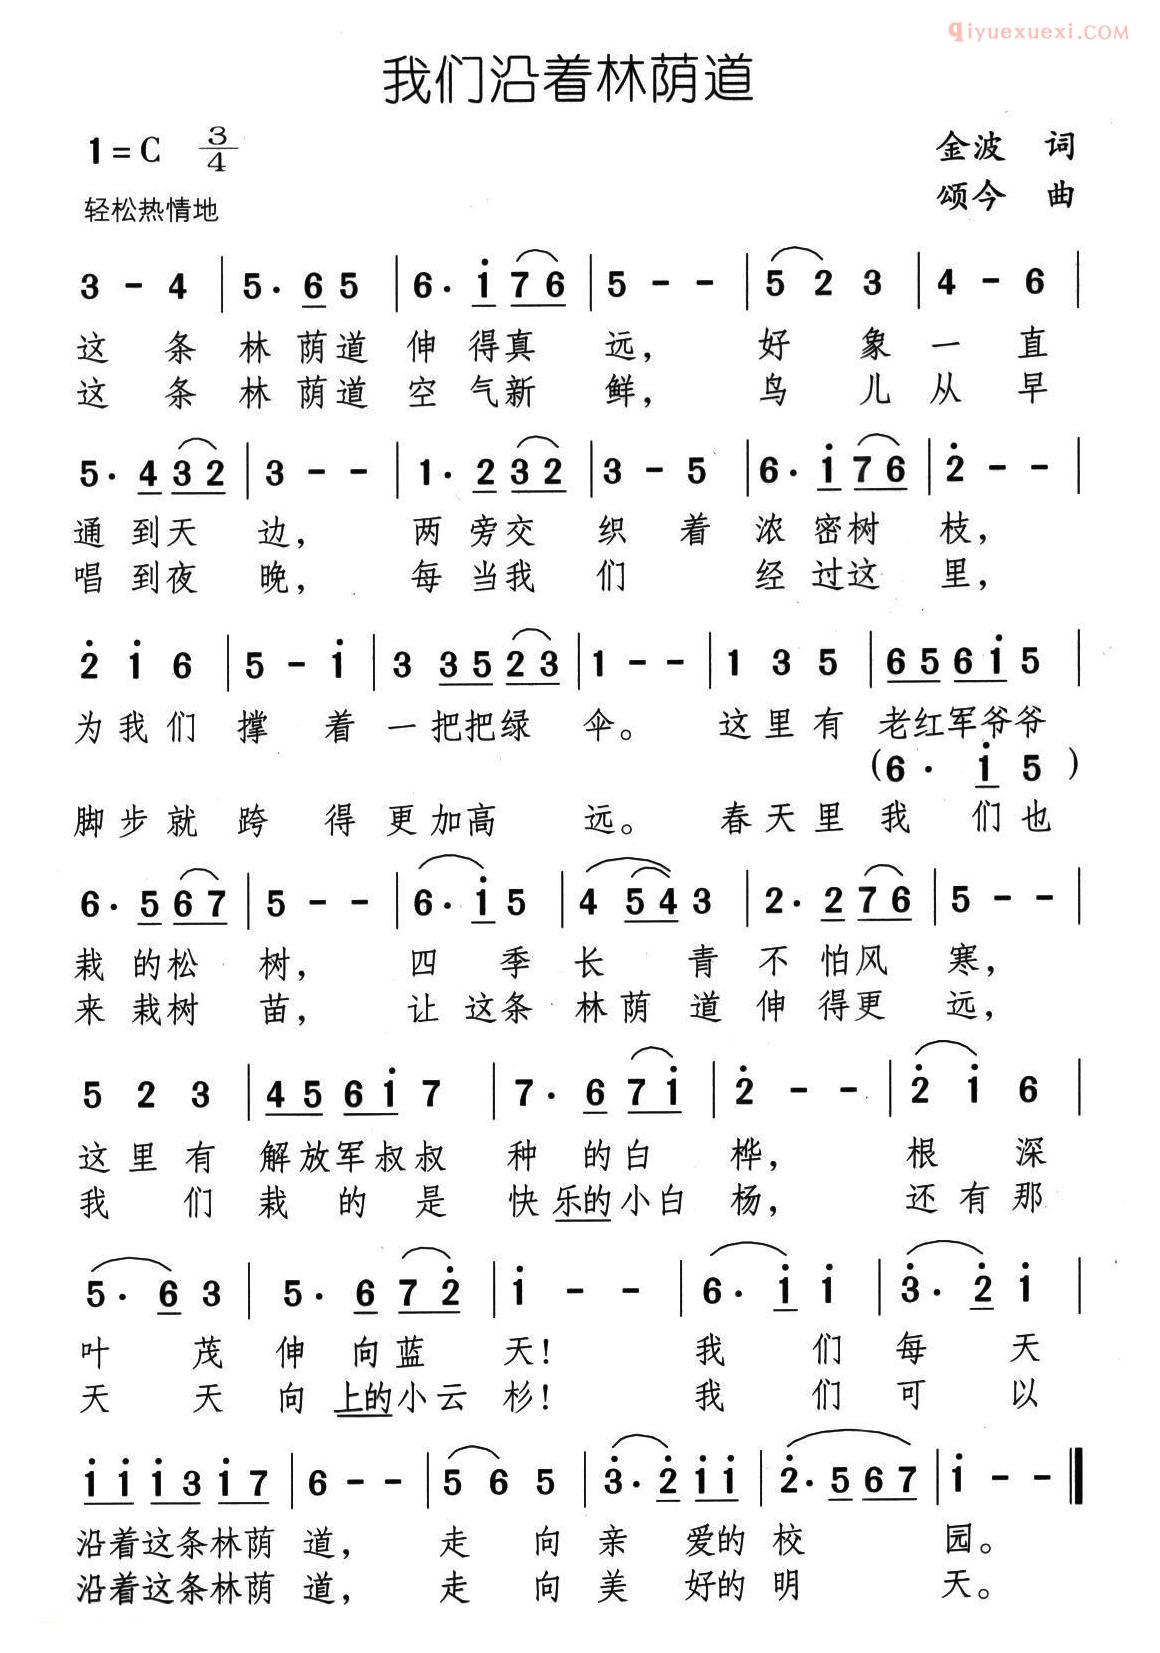 qiyuexuexi.COM
我们沿着林荫道
1=C 3/4
金波 词
轻松热情地
颂今 曲
3 - 4 | 5. 6 5 | 6. i 7 6 | 5 - - | 5 2 3 | 4 - 6 |
这条林荫道伸得真远，好象一直
这条林荫道空气新鲜，鸟儿从早
5. 4 3 2 | 3 - - | 1. 2 3 2 | 3 - 5 | 6. i 7 6 | 2̇ - - |
通到天边，两旁交织着浓密树枝，
唱到夜晚，每当我们经过这里，
2̇ i 6 | 5 - i | 3 3 5 2 3 | 1 - - | 1 3 5 | 6 5 6 i 5 |
为我们撑着一把把绿伞。这里有老红军爷爷
(6. i 5)
脚步就跨得更加高远。春天里我们也
6. 5 6 7 | 5 - - | 6. i 5 | 4 5 4 3 | 2. 2 7 6 | 5 - - |
栽的松树，四季长青不怕风寒，
来栽树苗，让这条林荫道伸得更远，
5 2 3 | 4 5 6 i 7 | 7. 6 7 i | 2̇ - - | 2̇ i 6 |
这里有解放军叔叔种的白桦，根深
我们栽的是快乐的小白杨，还有那
5. 6 3 | 5. 6 7 2̇ | i - - | 6. i i | 3̇. 2̇ i |
叶茂伸向蓝天！我们每天
天天向上的小云杉！我们可以
i i i 3̇ i 7 | 6 - - | 5 6 5 | 3̇. 2̇ i i | 2̇. 5 6 7 | i - - ‖
沿着这条林荫道，走向亲爱的校园。
沿着这条林荫道，走向美好的明天。